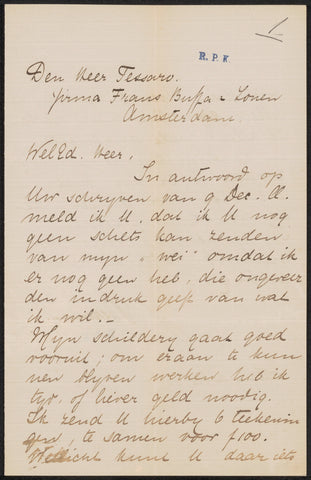 1
R. P. K.
Den Heer Tessaro.
firma Frans Buffa & Zonen
Amsterdam.
WelEd. Heer,
In antwoord op
Uw schryven van 9 Dec. ll.
meld ik U, dat ik U nog
geen schets kan zenden
van myn „wei" omdat ik
er nog geen heb, die ongeveer
den indruk geeft van wat
ik wil. —
Myn schildery gaat goed
vooruit; om eraan te kun
nen blyven werken heb ik
tyd, of liever geld noodig.
Ik zend U hierby 6 teekenin
gen, te samen voor f100.
Wellicht kunt U daar iets